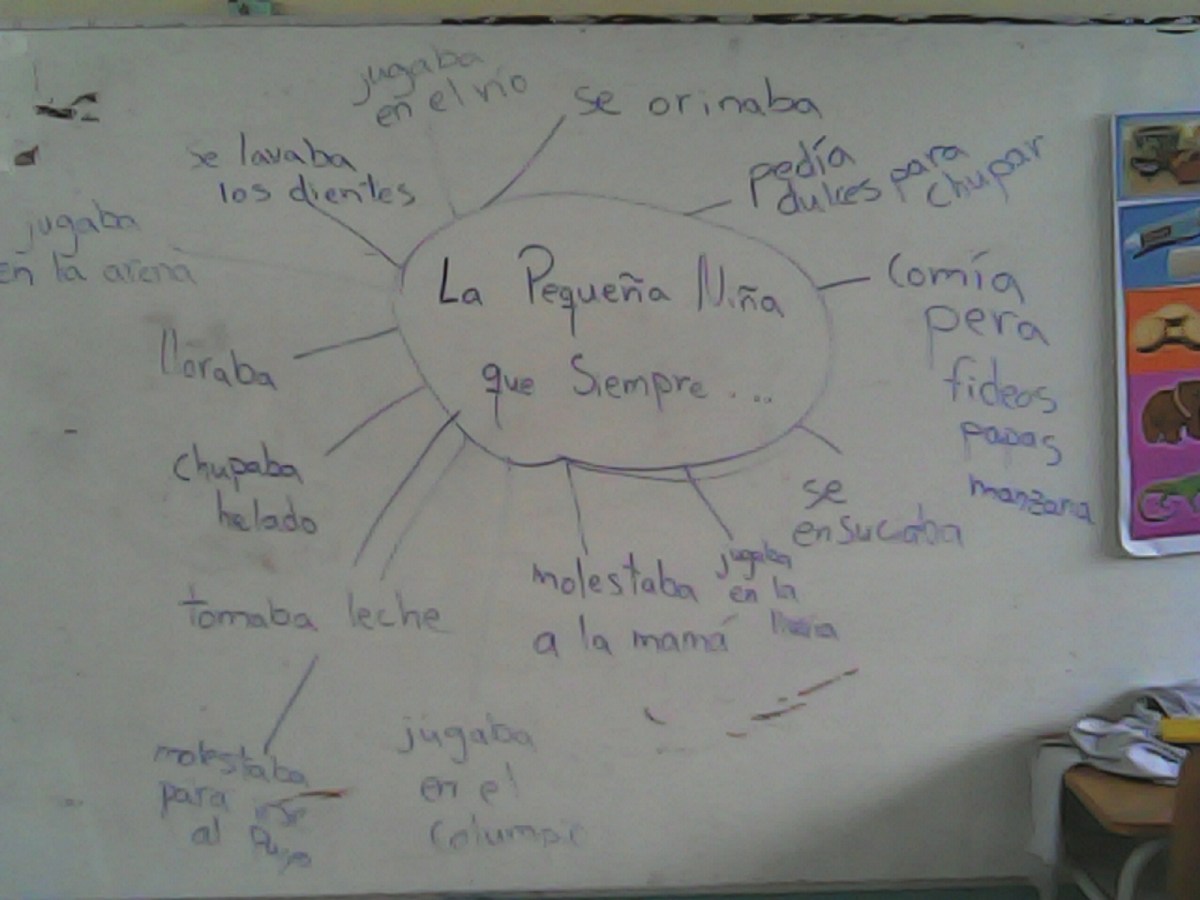 jugaba
en el río
se orinaba
se lavaba
los dientes
pedía
dulces para
chupar
jugaba
en la arena
La Pequeña Niña
que Siempre ....
Comía
pera
fideos
papas
manzana
lloraba
chupaba
helado
se
ensuciaba
tomaba leche
molestaba
a la mamá
jugaba
en la
lluvia
molestaba
para
al
jugaba
en el
columpio